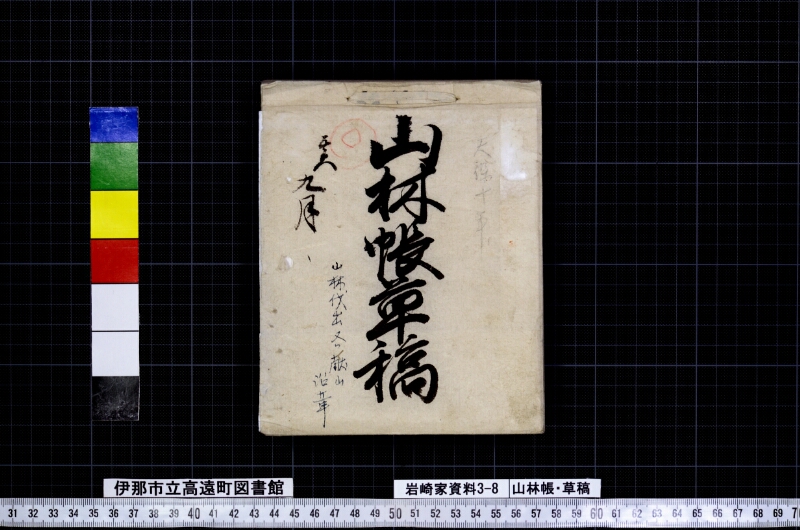 山林帳草稿
九月
山林伐出又鉱山
沿革
伊那市立高遠町図書館
岩崎家資料3-8 山林帳・草稿
31 32 33 34 35 36 37 38 39 40 41 42 43 44 45 46 47 48 49 50 51 52 53 54 55 56 57 58 59 60 61 62 63 64 65 66 67 68 69